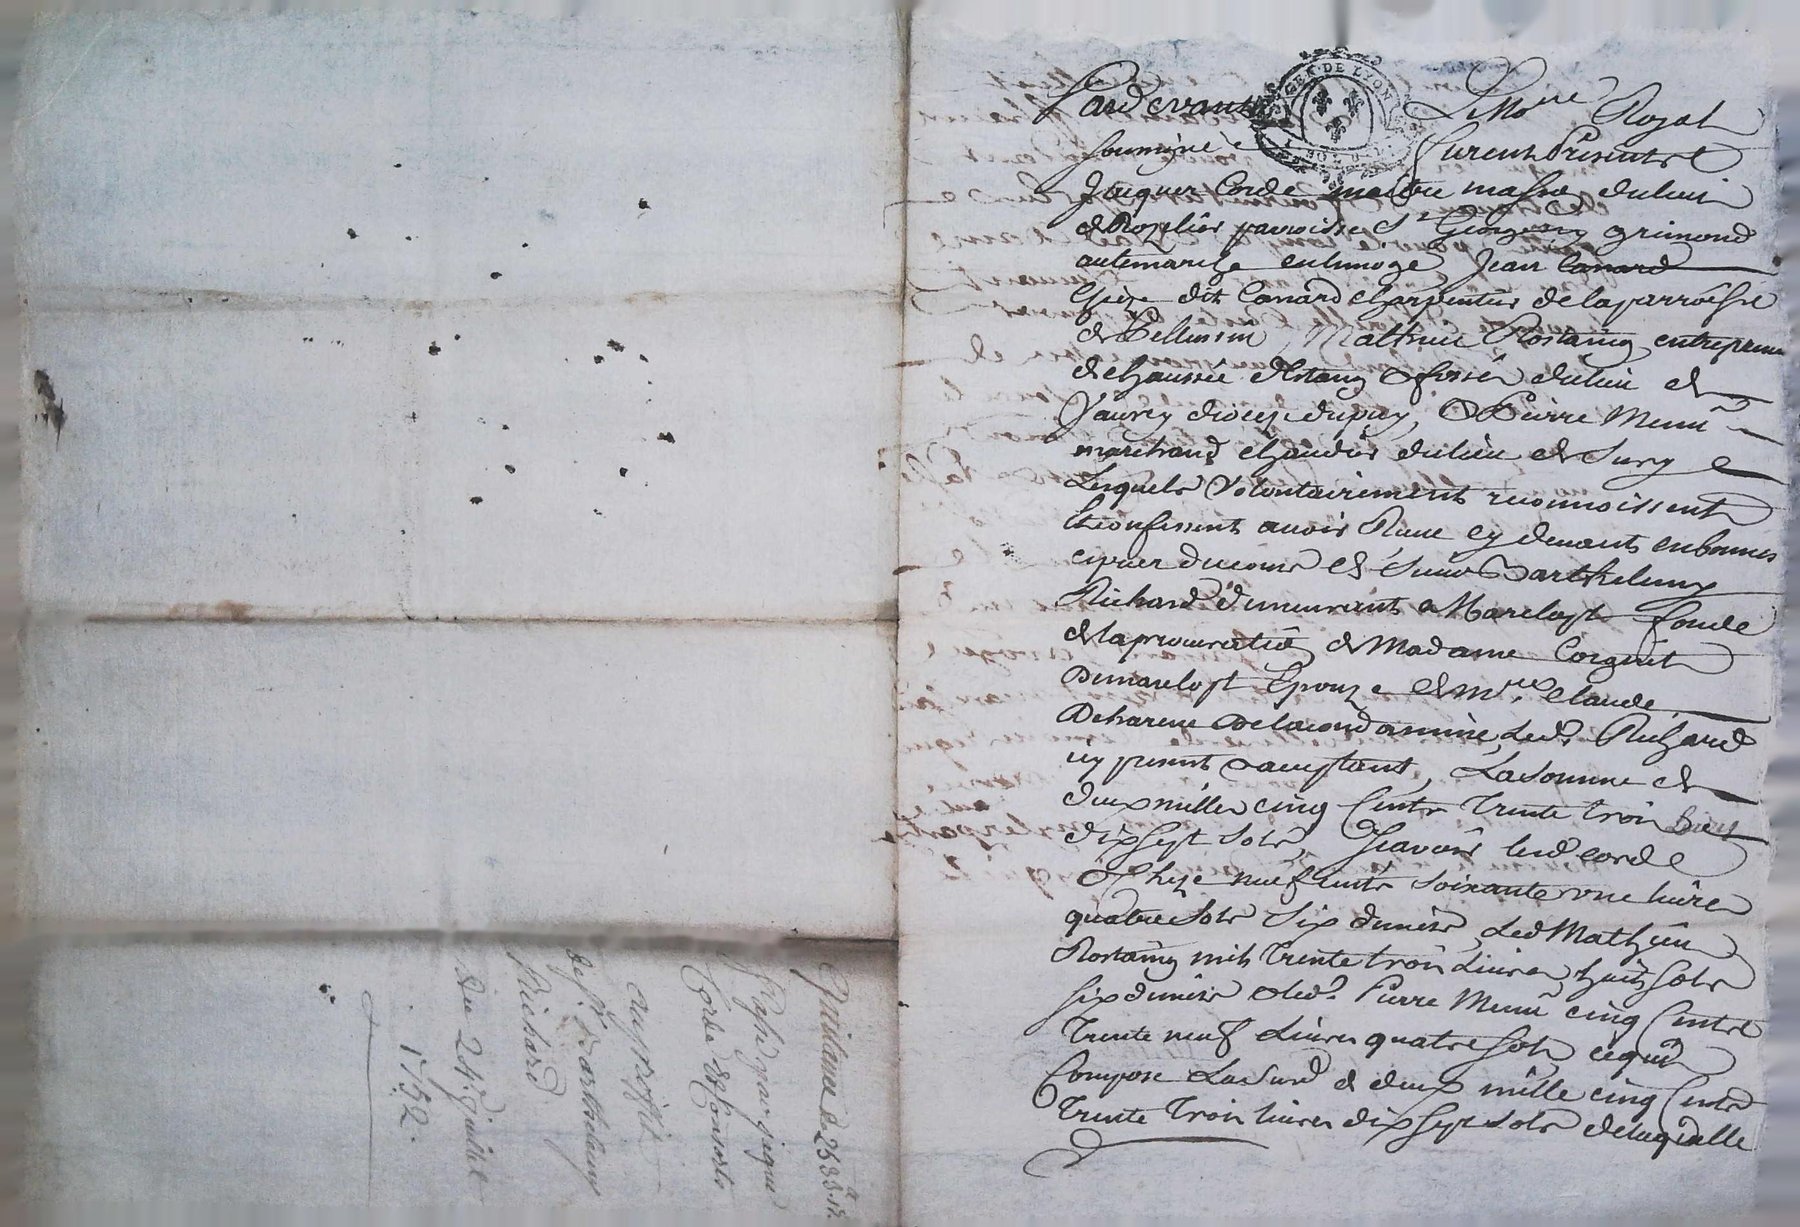 Pardevant Le Nore Royal
soussigné furent Présents
Jacques Corde maitre masson du lieu
de Rozelier parroisse St Georges grimond
Jean Canard
Chèze dit Canard charpentier de la parroisse
de Pellussin, Mathieu Rostaing entrepreneur
de chaussée d'Estang & fossés du lieu de
diocèse du puy, & Pierre
marchand du lieu de Sury
Lesquels volontairement reconnoissent
et confessent avoir Reçu cy devant en bonnes
espèces du cours de Sieur Barthelemy
Richard demeurant a Marclopt fondé
de la procuration de Madame
De marclopt Epouze de Mre Claude
Deharene Delacondamine, Led. Richard
icy present & acceptant, La somme de
deux mille cinq Cents Trente Trois livres
dix sept sols, Scavoir led corde
& Chèze neuf cents soixante une livre
quatre sols six deniers, Led Mathieu
Rostaing mil Trente trois Livres huit sols
six deniers & led. Pierre cinq Cents
Trente neuf Livres quatre sols ce qui
Compose La sud de deux mille cinq Cents
Trente Trois livres dix sept sols de laquelle
Quitance de 2533.17
Passé par Jacque
Corde & Consorts
au proffit
de sr Barthelemy
Richard
du 24. juillet
1752.